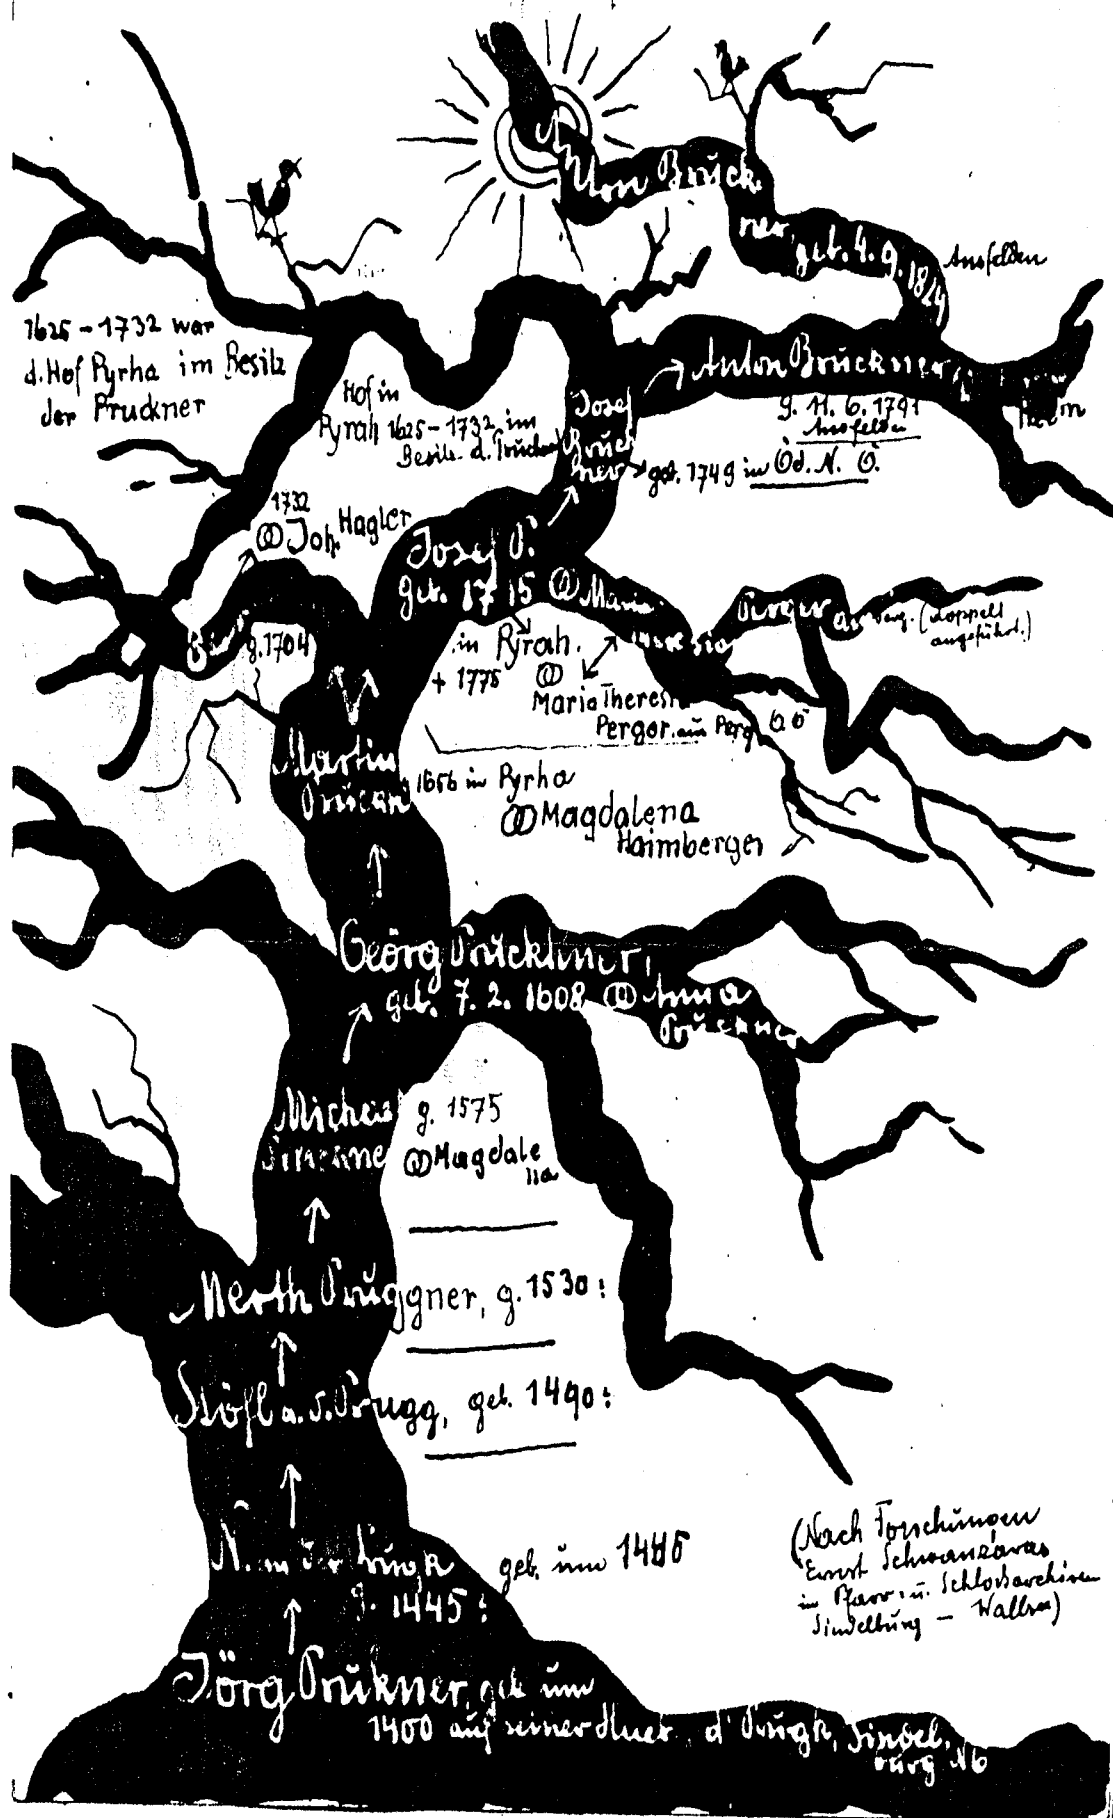 Anton Bruck
ner, geb. 4. 9. 1824
Ansfelden
1625-1732 war
d. Hof Pyrha im Besitz
der Pruckner
Hof in
Pyrah 1625-1732 im
Besitz d. Pruckner
Anton Bruckner,
g. 11. 6. 1791
Ansfelden
Josef
Bruck
ner
geb. 1749 in Öd. N. Ö.
1732
Joh. Hagler
Josef P.
geb. 1715 Maria
g. 1704
Perger
(doppelt
angeführt.)
in Pyrah.
+ 1775
Maria Theresia
Perger. aus Perg O.Ö
Martin
Pruckn
1656 in Pyrha
Magdalena
Haimberger
Geörg Prückhner,
geb. 7. 2. 1608 Anna
Pruckner
Michael
Pruckner
g. 1575
Magdale
na
Merth Pruggner, g. 1530:
Stöfl a. d. Prugg, geb. 1490:
N. an der Prugk
geb. um 1445
g. 1445:
Jörg Prukner, geb. um
1400 auf seiner Hueb d' Prugk, Sindel,
burg Nö
(Nach Forschungen
Ernst Schwanzaras
in Pfarr- u. Schlossarchiven
Sindelburg - Wallsee)